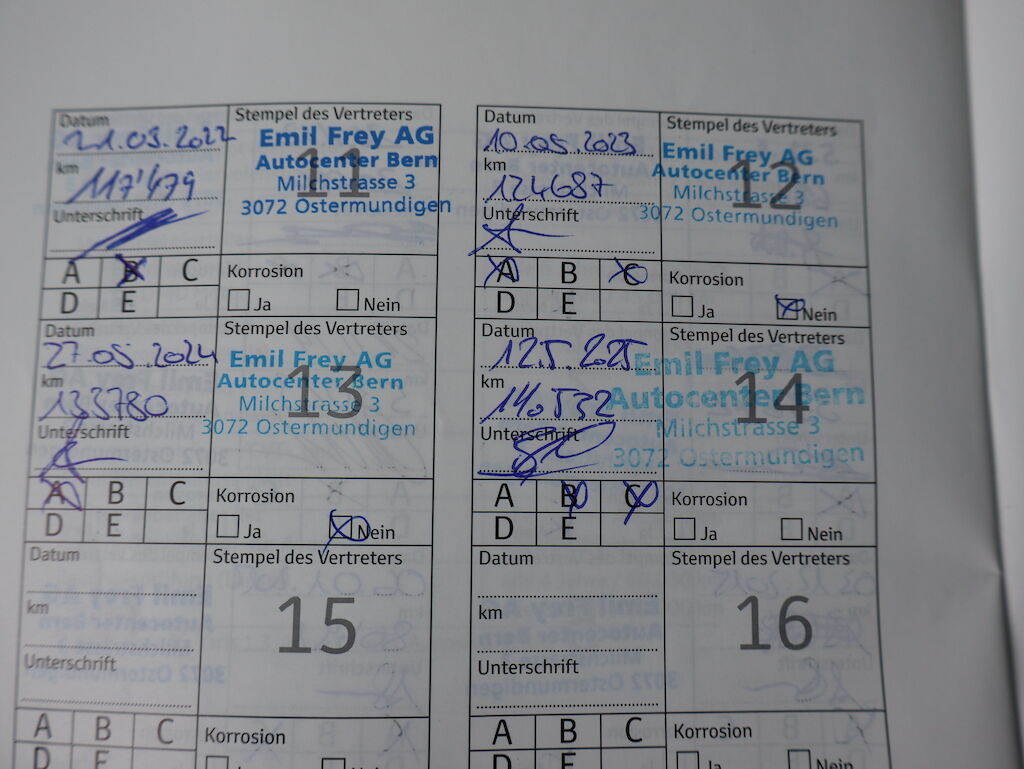 Datum
21.03.2022
km
117'479
Unterschrift
Stempel des Vertreters
11
Emil Frey AG
Autocenter Bern
Milchstrasse 3
3072 Ostermundigen
A B C
D E
Korrosion
Ja Nein
Datum
10.05.2023
km
124687
Unterschrift
Stempel des Vertreters
12
Emil Frey AG
Autocenter Bern
Milchstrasse 3
3072 Ostermundigen
A B C
D E
Korrosion
Ja Nein
Datum
27.05.2024
km
133780
Unterschrift
Stempel des Vertreters
13
Emil Frey AG
Autocenter Bern
Milchstrasse 3
3072 Ostermundigen
A B C
D E
Korrosion
Ja Nein
Datum
12.5.2025
km
140532
Unterschrift
Stempel des Vertreters
14
Emil Frey AG
Autocenter Bern
Milchstrasse 3
3072 Ostermundigen
A B C
D E
Korrosion
Ja Nein
Datum
km
Unterschrift
Stempel des Vertreters
15
A B C
D E
Korrosion
Ja Nein
Datum
km
Unterschrift
Stempel des Vertreters
16
A B C
D E
Korrosion
Ja Nein